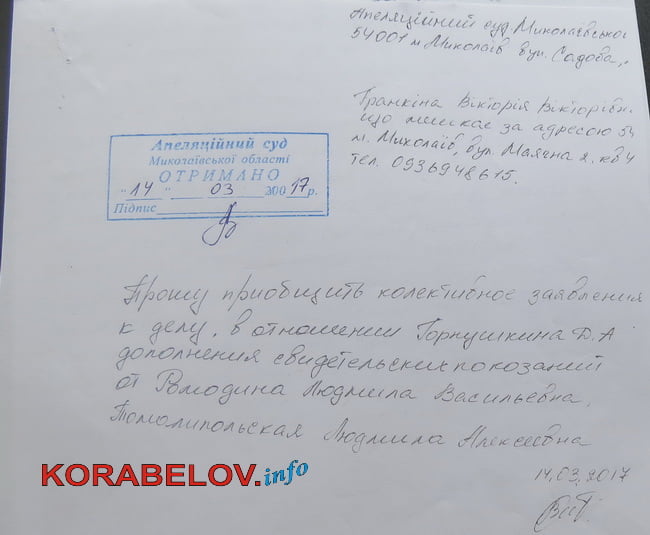 Апеляційний суд Миколаївської
54001 м Миколаїв вул. Садова,
Вікторія Вікторівн
що мешкає за адресою 54
м. Миколаїв, вул. Маячна кв 4
тел. 0936948615.
Апеляційний суд
Миколаївської області
ОТРИМАНО
"14" 03 200 17 р.
Підпис
Прошу приобщить колективное заявления
к делу, в отношении Горпушкина Д.А
дополнения свидетельских показаний
от Людмила Васильевна,
Людмила Алексеевна
14.03.2017
KORABELOV.info